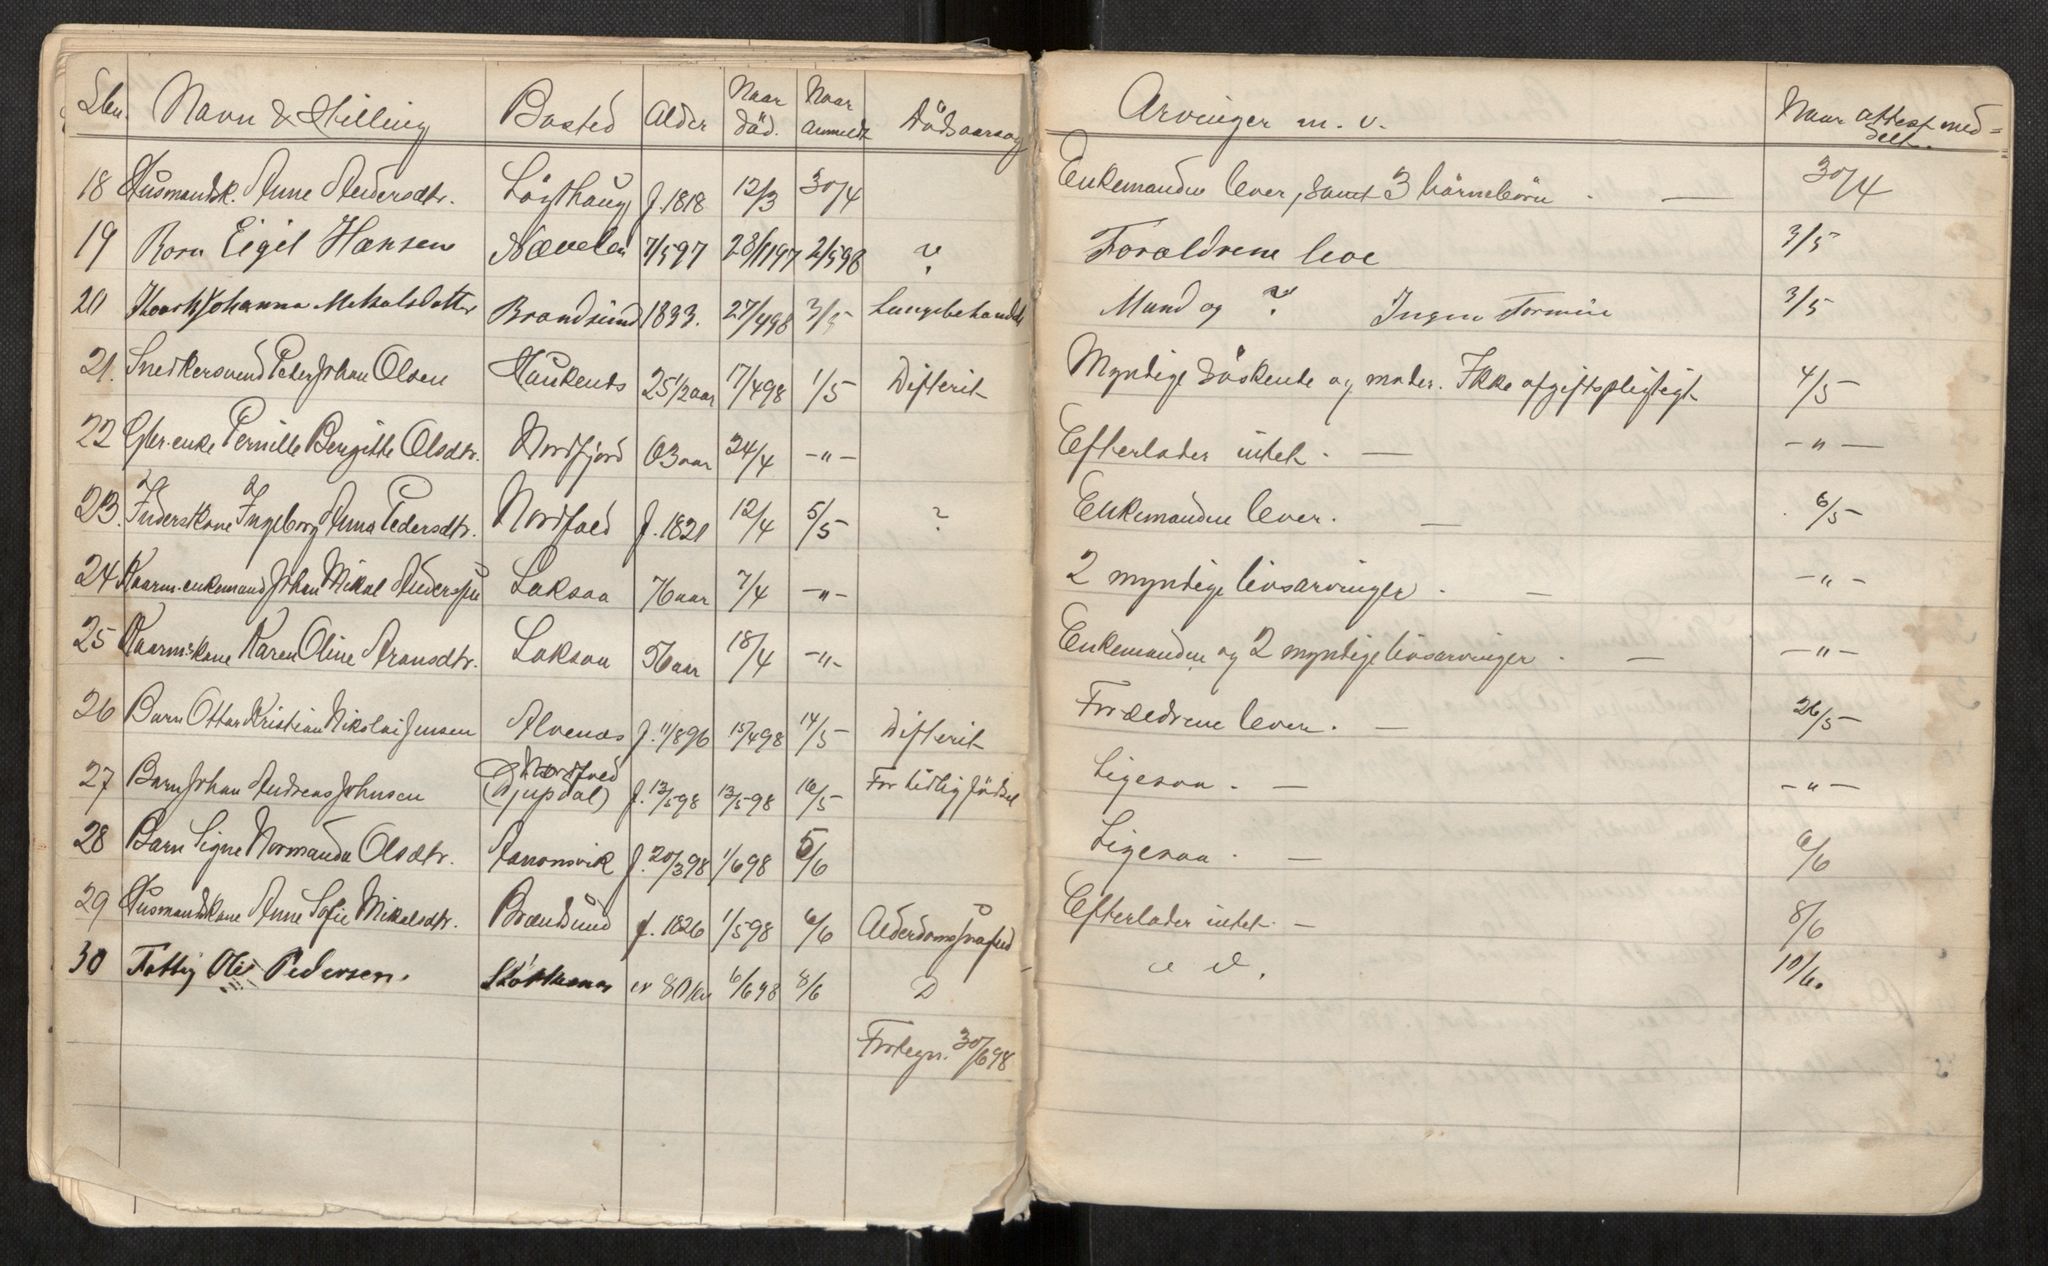 Lbn. Navn & Stilling Bosted Alder Naar död. Naar anmeldt Dödsaarsag Arvinger m. v. Naar attest meddelt.
18 Husmandsk. Anne Andersdtr. Løgthaug f. 1818 12/3 30/4 Enkemanden lever, samt 3 börnebörn . — 30/4
19 Barn Eigil Hansen Nævelen 7/5 97 28/11 97 2/5 98 ? Forældrene leve 3/5
20 Johanna Mikalsdatter Brandsund 1833. 27/4 98 3/5 Mand og ? Ingen Formue 3/5
21. Snedkersvend Peder Johan Olsen 25 1/2 aar 17/4 98 1/5 Difterit Myndige söskende og moder. Ikke afgiftspligtigt 4/5
22 Gbr.enke Pernille Bergitte Olsdtr. Nordfjord 63 aar 24/4 -"- Efterlader intet. — -"-
23. Inderstkone Ingeborg Anna Pedersdtr. Nordfold f. 1821 12/4 5/5 ? Enkemanden lever. — 6/5
24 Kaarm.enkemand Johan Mikal Anderssen Laksaa 76 aar 7/4 -"- 2 myndige livsarvinger . — -"-
25 Kaarm.kone Karen Oline Aronsdtr. Laksaa 56 aar 18/4 -"- Enkemanden og 2 myndige livsarvinger . — -"-
26 Barn Ottar Kristian Nikolai Jensen Alvenæs f. 11/8 96 15/4 98 14/5 Difterit Forældrene lever. — 26/5
27 Barn Johan Andreas Johnsen Nordfold (Djupdal) f. 13/5 98 13/5 98 16/5 For tidlig födsel Ligesaa . — -"-
28 Barn Signe Normanda Olsdtr. Aanonsvik f. 20/3 98 1/6 98 5/6 Ligesaa . — 6/6
29 Husmandskone Anne Sofie Mikalsdtr. Brændsund f. 1826 1/5 98 6/6 Alderdomssvaghed Efterlader intet. — 8/6
30 Fattig Ole Pedersen. 80 6/6 98 8/6 D 10/6.
Fortegn. 30/6 98